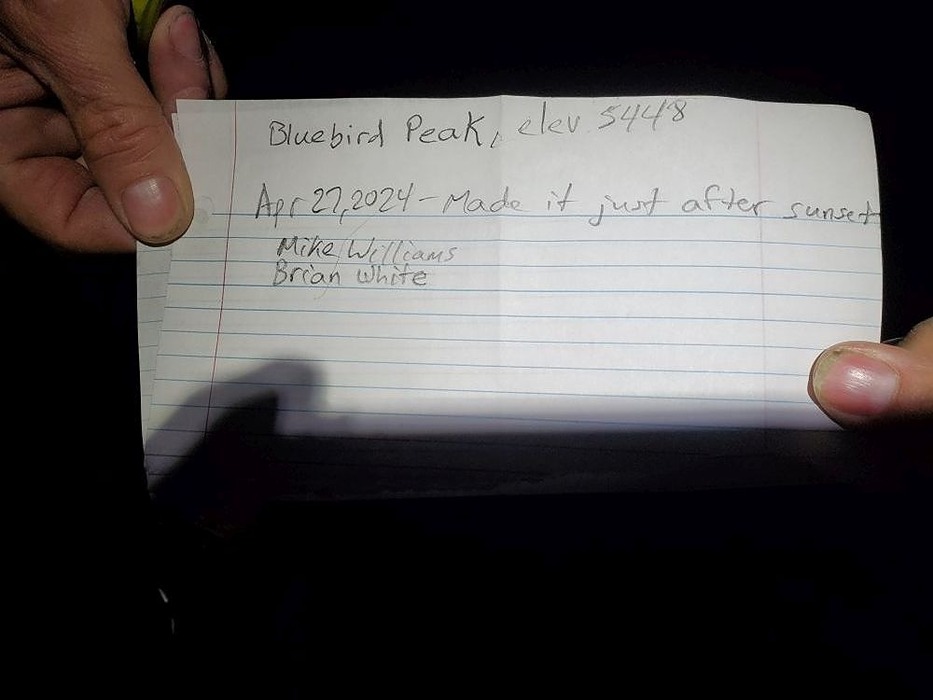 Bluebird Peak, elev 5448
Apr 27, 2024 - Made it just after sunset
Mike Williams
Brian White